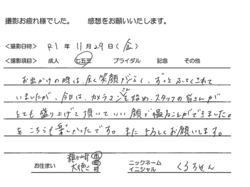 撮影お疲れ様でした。　感想をお願いいたします。
<撮影日時>　R1年11月29日(金)
<撮影項目>　成人　七五三　ブライダル　記念　その他
お出かけの時は、全く笑顔がなく、ずっとふてくされて
いましたが、今日は、カメラマンさんを始め、スタッフの皆さんが
とても盛り上げて頂いて、いい顔が撮ることができました。
こちらも楽しかったです。またよろしくお願いします。
お住まい　市　区　ニックネーム
イニシャル　くうちゃん